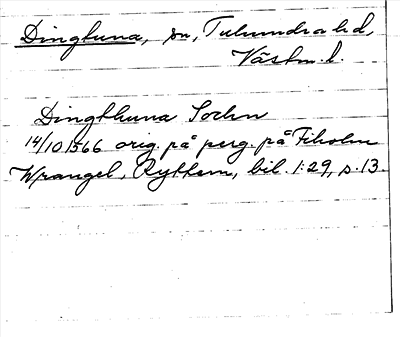 Dingtuna, sn, Tuhundra hd,
Västm. l.
Dingthuna Sochn
14/10 1566 orig. på perg. på Fiholm
Wrangel, Ryttern, bil. 1:29, s. 13.